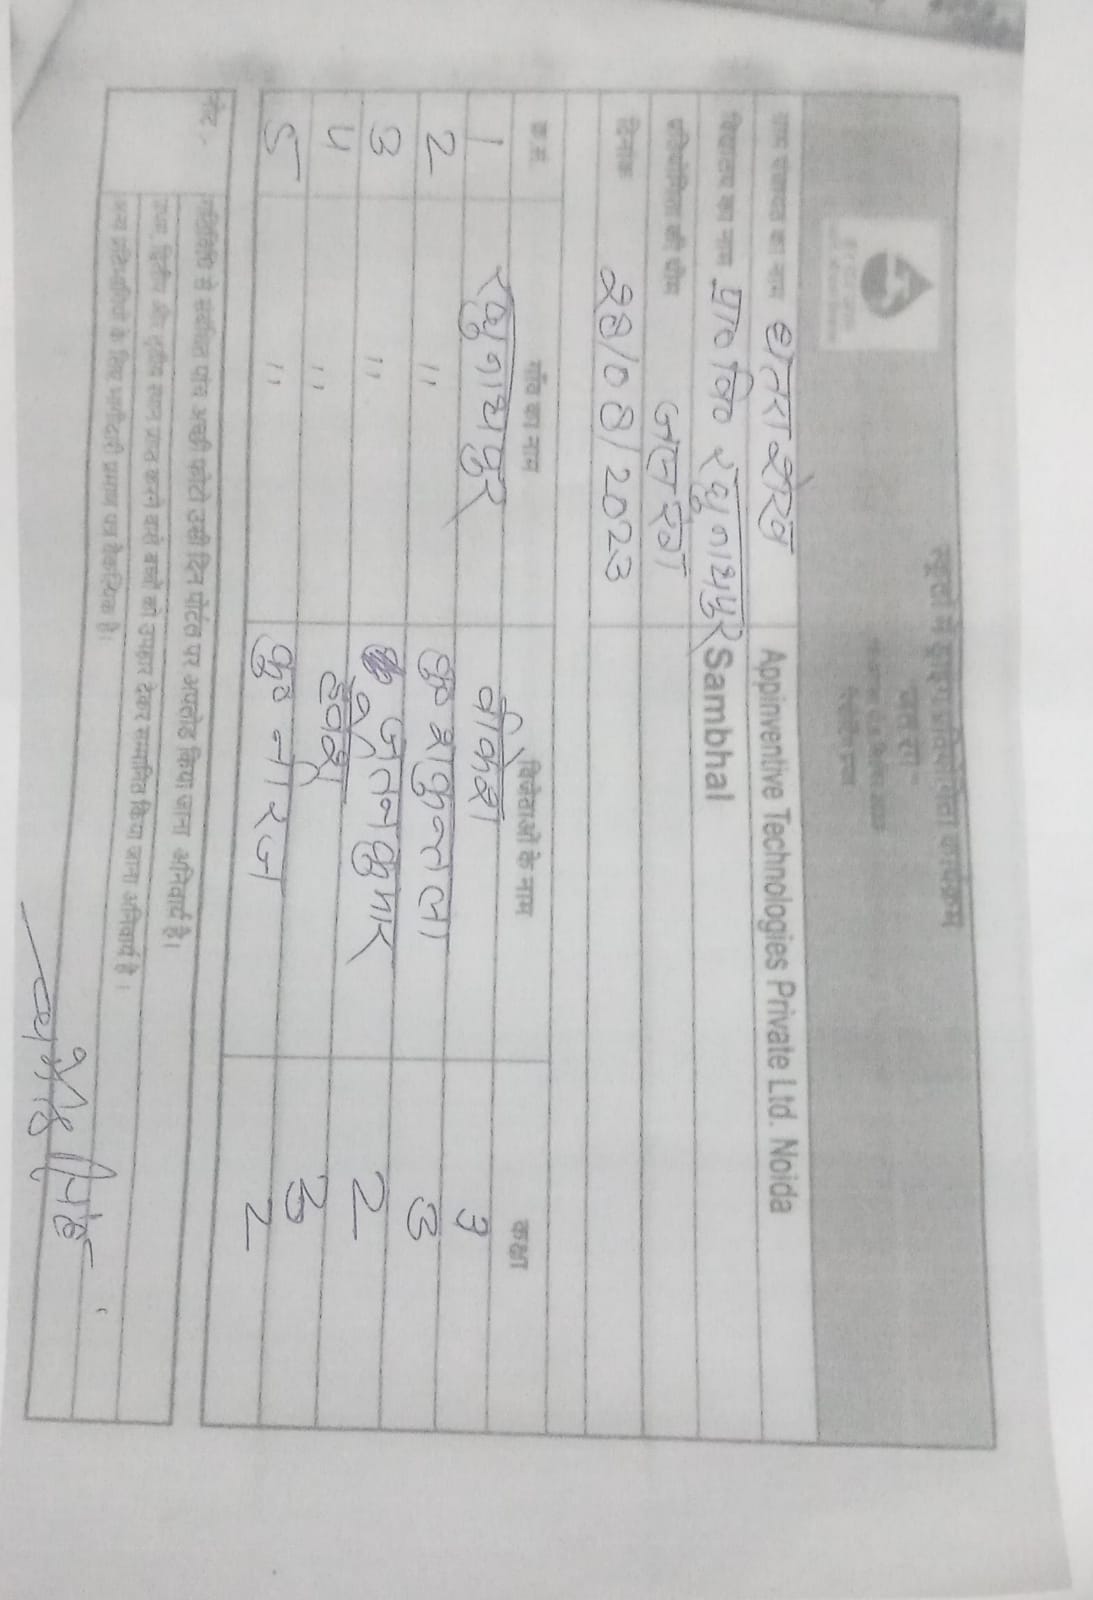 स्कूलों में ड्राइंग प्रतियोगिता कार्यक्रम
ग्राम पंचायत का नाम धतरा शेख Appinventive Technologies Private Ltd. Noida
विद्यालय का नाम प्रा० वि० रघुनाथपुर Sambhal
प्रतियोगिता की थीम
दिनांक 28/08/2023
क्र.सं. गाँव का नाम विजेताओं के नाम कक्षा
1 रघुनाथपुर वीकेश 3
2 " कु० शकुन्तला 3
3 " 2
4 " 3
5 " कु० नीरज 2
नोट -
गतिविधि से संबंधित पांच अच्छी फोटो उसी दिन पोर्टल पर अपलोड किया जाना अनिवार्य है।
प्रथम, द्वितीय और तृतीय स्थान प्राप्त करने वाले बच्चों को उपहार देकर सम्मानित किया जाना अनिवार्य है।
अन्य प्रतिभागियों के लिए भागीदारी प्रमाण पत्र वैकल्पिक है।